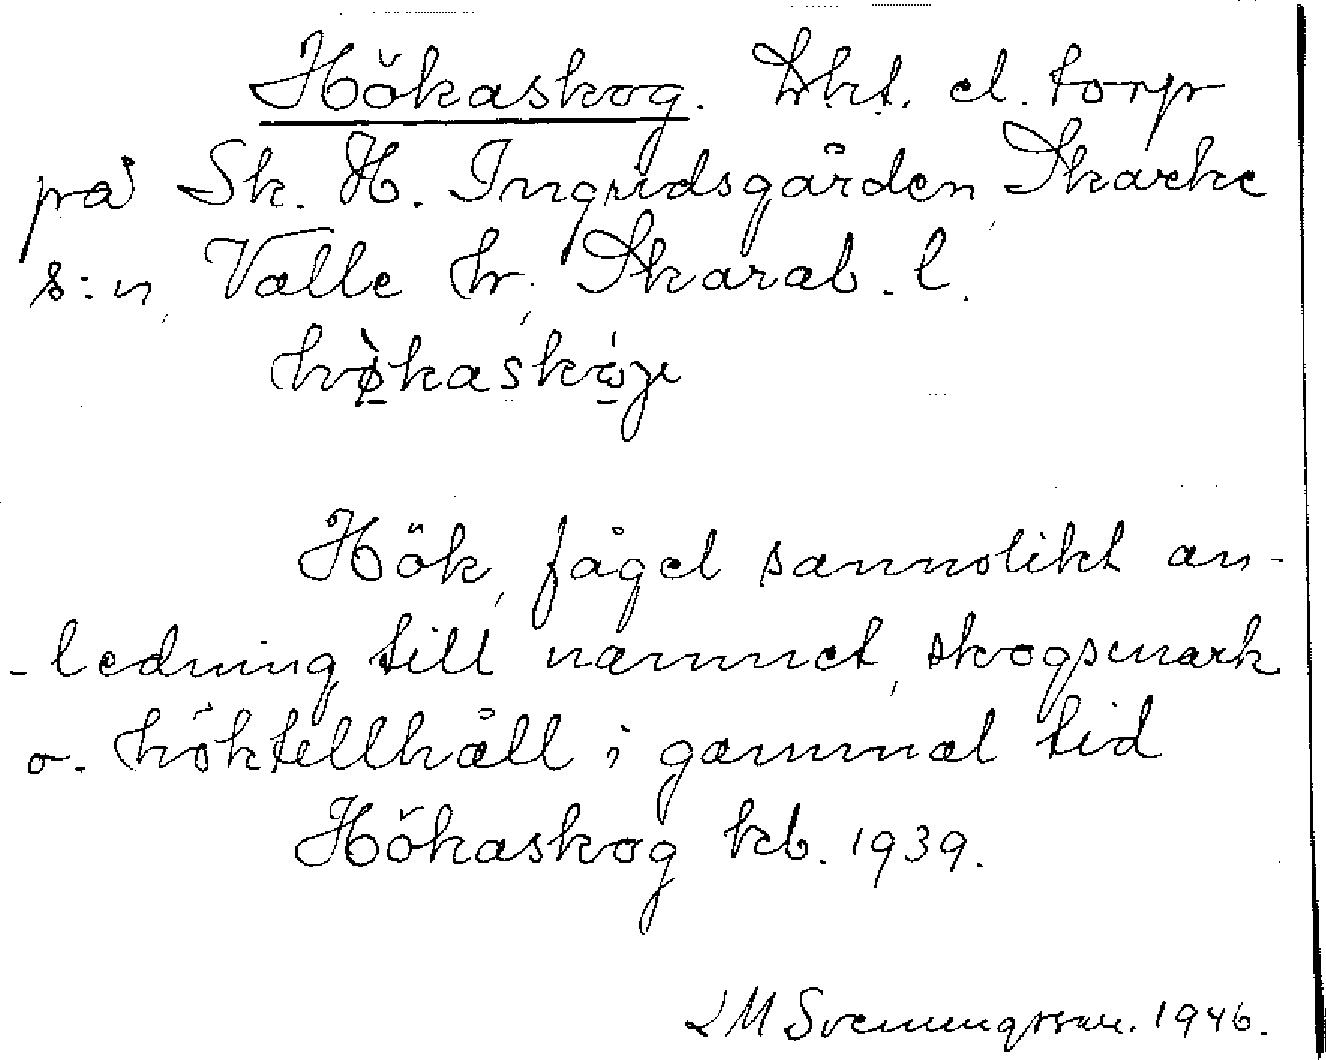 Hökaskog. Lht. el. torp
på Sk. H. Ingridsgården, Skarke
s:n, Valle hr, Skarab. l.
Hök, fågel sannolikt an-
-ledning till namnet, skogsmark
o. höktillhåll i gammal tid
Hökaskog kb. 1939.
LM Svenungsson. 1946.